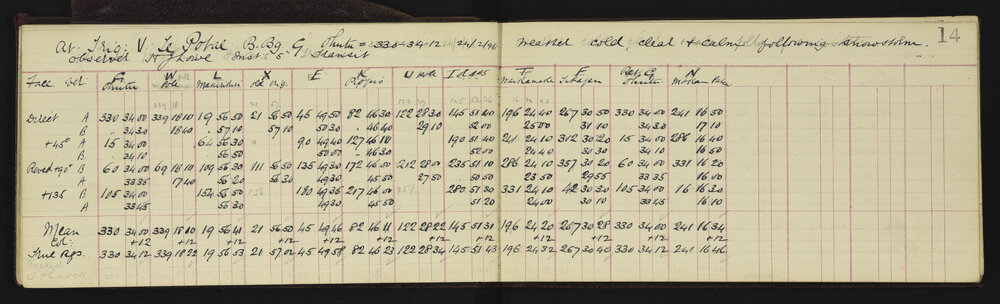 14
At Trig: V Te Potae B.Bg G Ohutu = 330 34 12 24/2/96 Weather cold, clear & calm following snowstorm.
Observer H J Lowe Inst. 5" Transit
G W L X E K U I F F Ret. G N
Face Vct Ohutu Pole Manukaiki Rd Pig. Pole 1 d 945 Waikanake Ohutu
Direct A 330 34 00 339 18 10 19 56 50 21 56 50 45 49 50 82 46 30 122 28 30 145 51 40 196 24 40 267 30 50 330 34 00 241 16 50
B 34 30 18 40 57 10 57 10 50 30 46 40 29 10 52 00 25 00 31 10 34 30 17 10
+45° A 15 34 00 64 56 30 90 49 40 127 46 10 190 51 40 241 24 10 312 30 20 15 34 00 286 16 40
B 34 10 56 50 50 00 46 30 52 00 24 40 30 30 34 10 16 50
Rev.d +90° B 60 34 00 69 18 10 109 56 30 111 56 50 135 49 30 172 46 00 212 28 00 235 51 10 286 24 10 357 30 20 60 34 00 331 16 20
A 33 35 17 40 56 20 56 30 49 30 45 50 27 50 50 50 23 50 29 55 33 35 16 00
+135 B 105 34 00 154 56 50 180 49 35 217 46 00 280 51 30 331 24 10 42 30 30 105 34 00 16 16 30
A 33 45 56 30 49 30 45 50 51 20 24 00 30 10 33 45 16 10
Mean 330 34 00 339 18 10 19 56 41 21 56 50 45 49 46 82 46 11 122 28 22 145 51 31 196 24 20 267 30 28 330 34 00 241 16 34
Col: +12 +12 +12 +12 +12 +12 +12 +12 +12 +12 +12 +12
True Bgs. 330 34 12 339 18 22 19 56 53 21 57 02 45 49 58 82 46 23 122 28 34 145 51 43 196 24 32 267 30 40 330 34 12 241 16 46